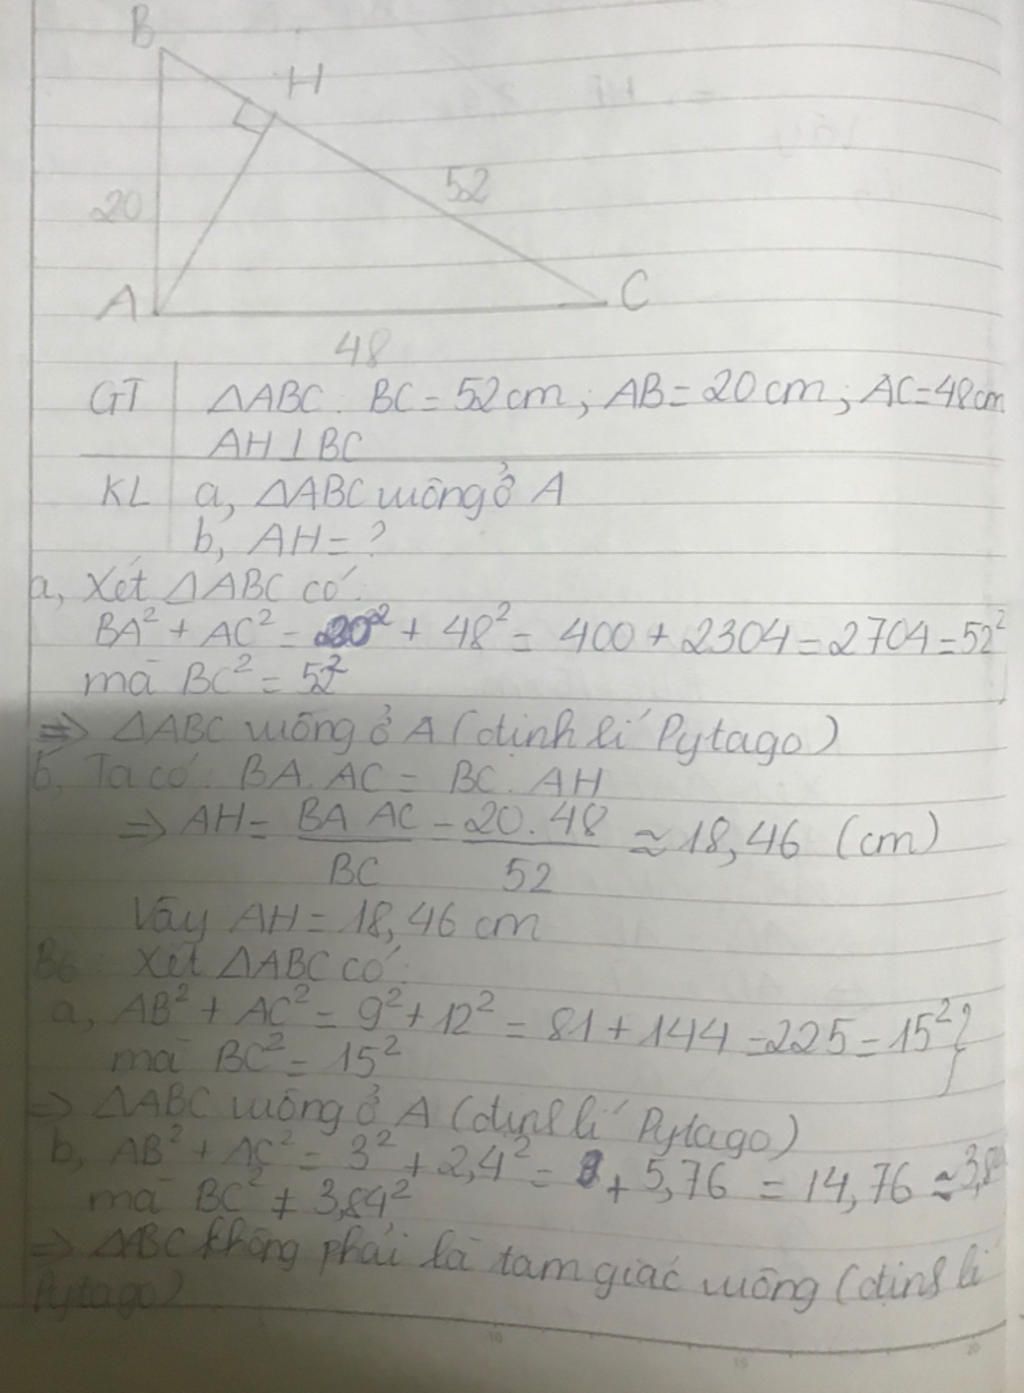 B
H
52
20
A
C
48
GT ΔABC: BC = 52 cm; AB = 20 cm; AC = 48 cm
AH ⊥ BC
KL a, ΔABC vuông ở A
b, AH = ?
a, Xét ΔABC có:
BA² + AC² = 20² + 48² = 400 + 2304 = 2704 = 52²
mà BC² = 52²
⇒ ΔABC vuông ở A (định lí Pytago)
b, Ta có: BA. AC = BC. AH
⇒ AH = BA AC / BC = 20. 48 / 52 ≈ 18,46 (cm)
Vậy AH = 18,46 cm
B6: Xét ΔABC có:
a, AB² + AC² = 9² + 12² = 81 + 144 = 225 = 15² }
mà BC² = 15²
⇒ ΔABC vuông ở A (định lí Pytago)
b, AB² + AC² = 3² + 2,4² = 9 + 5,76 = 14,76 ≈
mà BC² ≠ 3,84²
⇒ ΔABC không phải là tam giác vuông (định lí
Pytago)